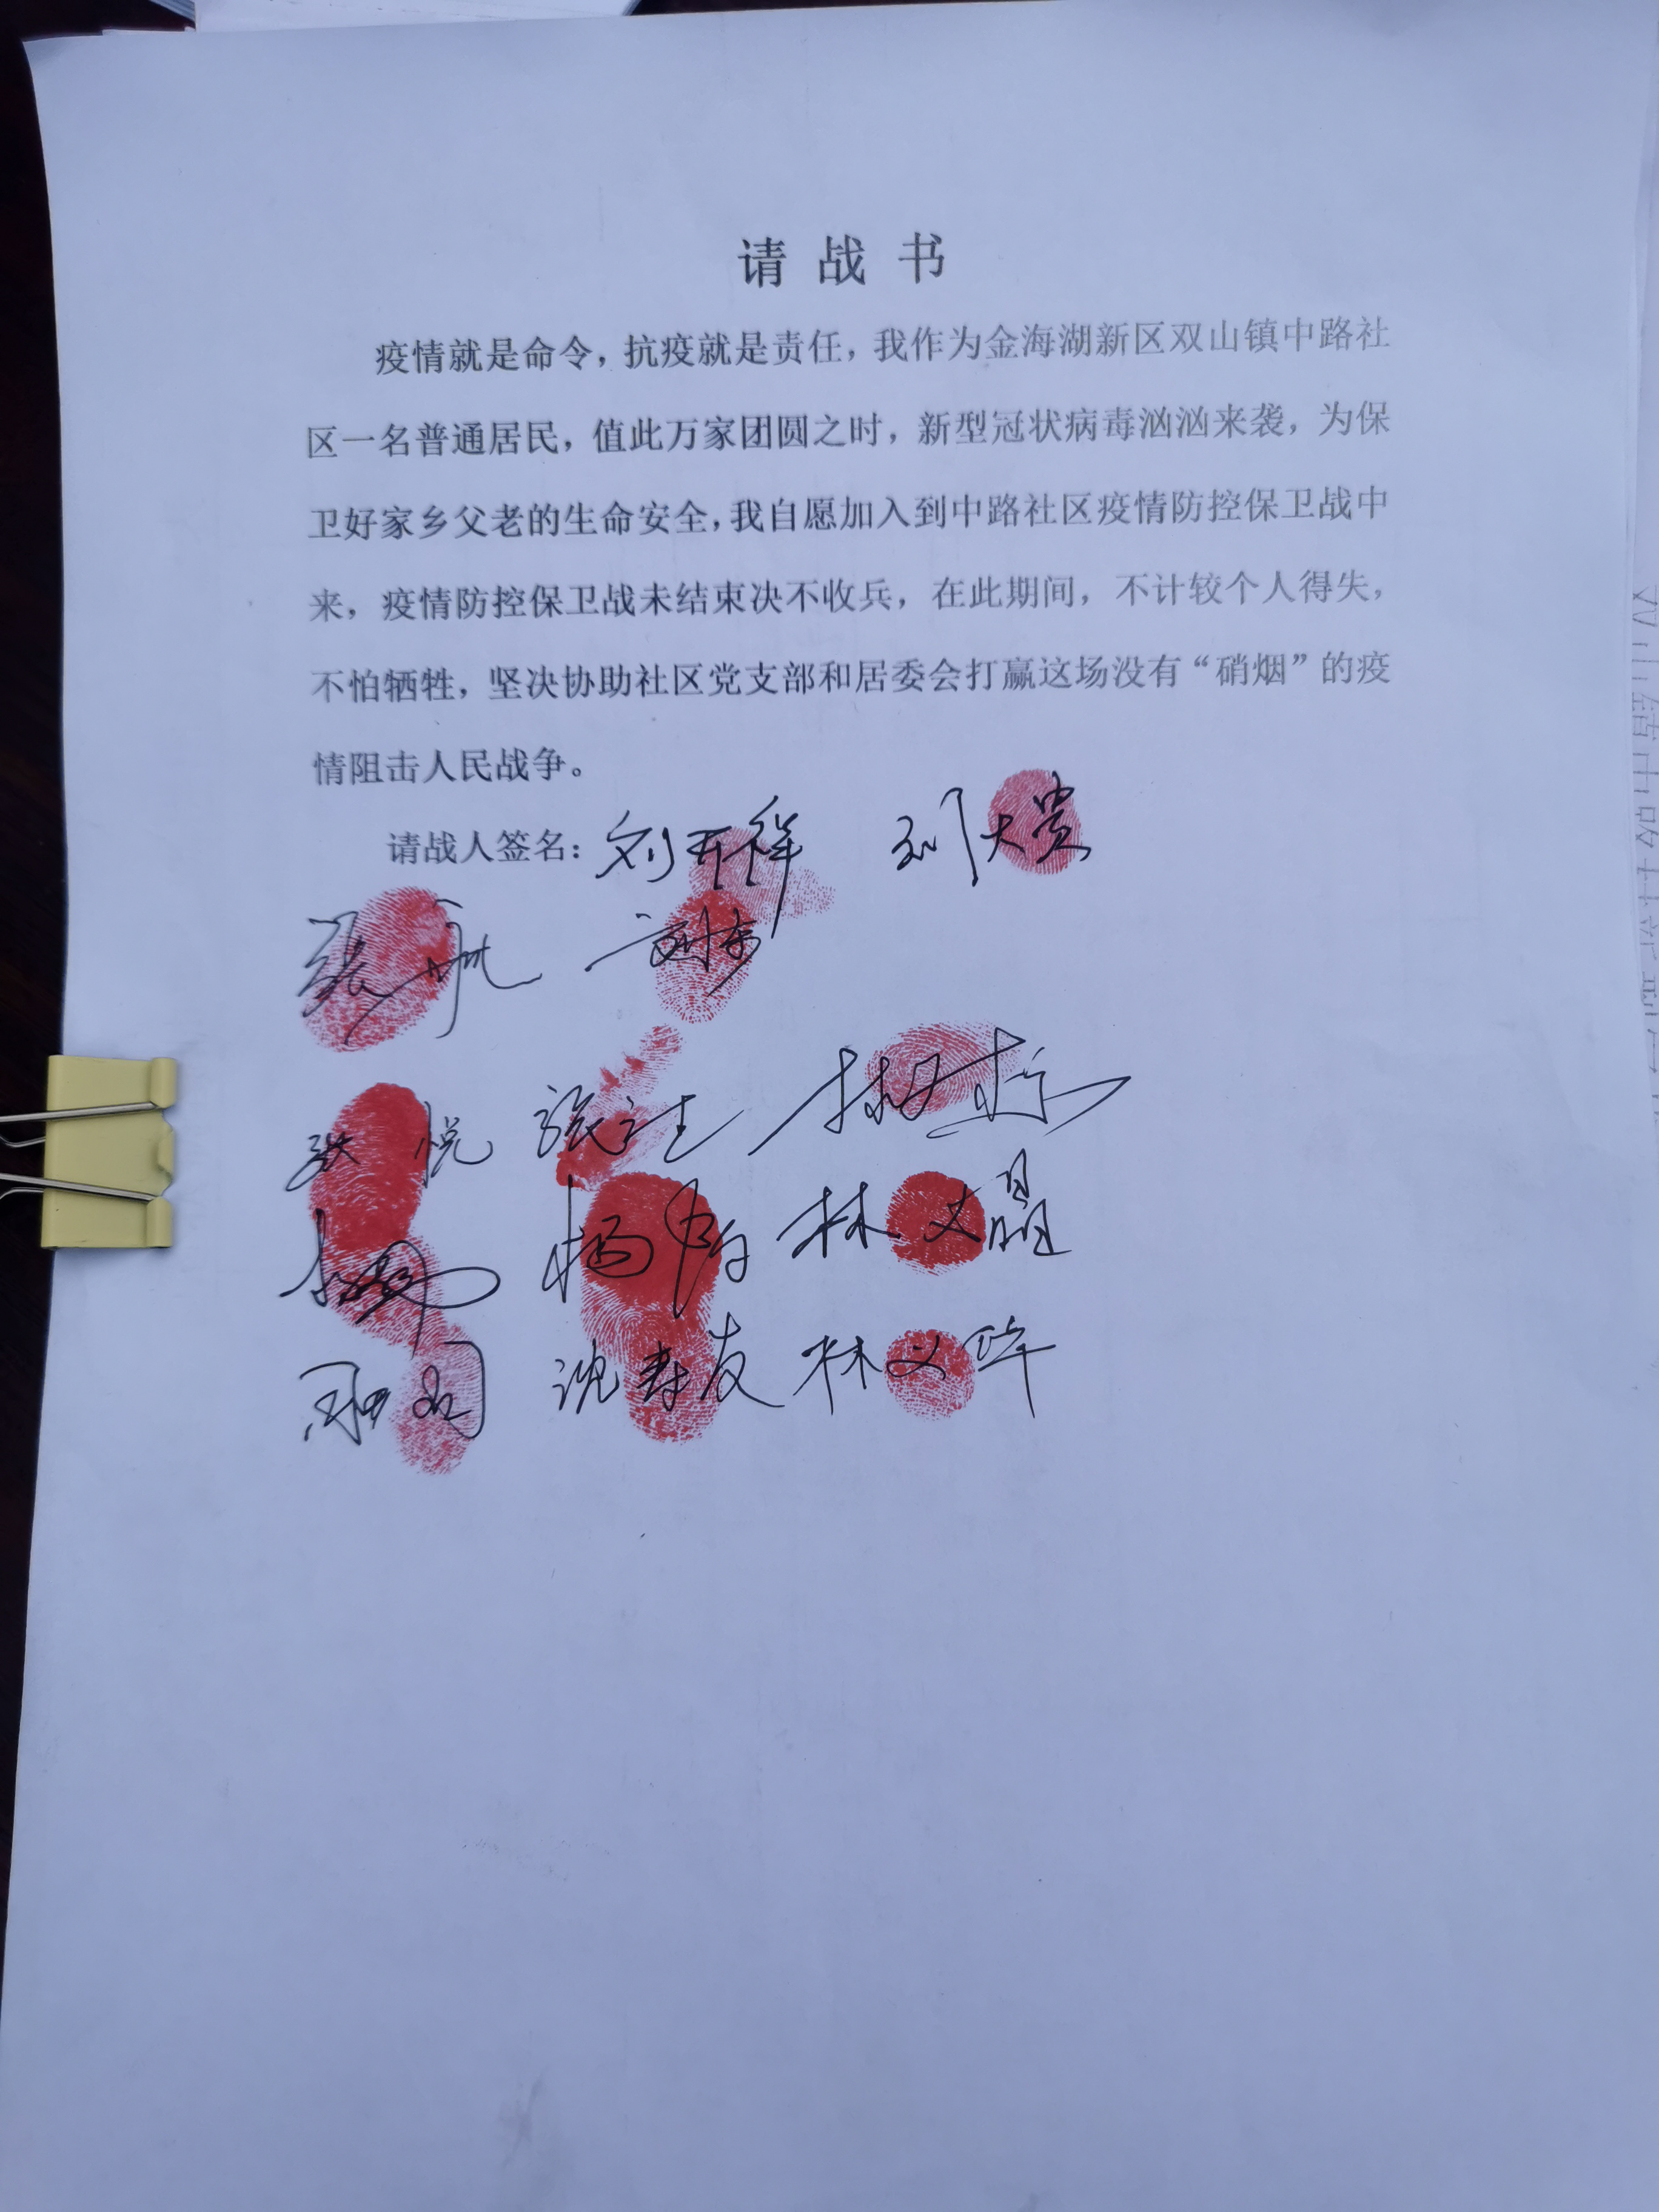 请战书
疫情就是命令，抗疫就是责任，我作为金海湖新区双山镇中路社
区一名普通居民，值此万家团圆之时，新型冠状病毒汹汹来袭，为保
卫好家乡父老的生命安全，我自愿加入到中路社区疫情防控保卫战中
来，疫情防控保卫战未结束决不收兵，在此期间，不计较个人得失，
不怕牺牲，坚决协助社区党支部和居委会打赢这场没有“硝烟”的疫
情阻击人民战争。
请战人签名：刘开祥 刘大贵
张航
张悦
林文晶
沈孝友 林文